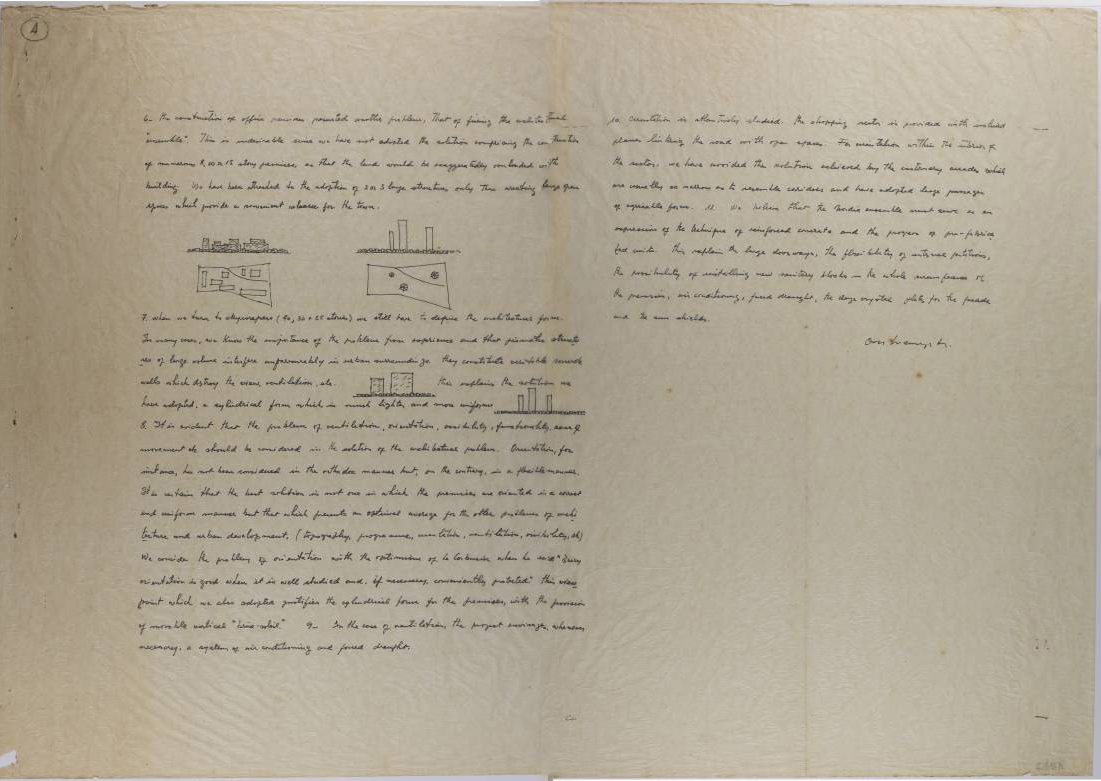 4
6_ the construction of office premises presented another problem, that of fixing the architectural
"ensemble". This is undesirable since we have not adopted the solution comprising the construction
of numerous 8, 10 or 12 story premises, so that the land would be exaggeratedly overloaded with
building. We have been attached to the adoption of 2 or 3 large structures, only thus creating large open
spaces which provide a convenient release for the town.
7. When we turn to skyscrapers (40, 30 & 25 stories) we still have to define the architectural form.
In many cases, we know the importance of the problem from experience and that prismatic structu
res of large volume interfere unfavourably in urban surroundings. They constitute veritable concrete
walls which destroy the view, ventilation, etc. this explains the solution we
have adopted, a cylindrical form which is much lighter and more uniform.
8. It is evident that the problem of ventilation, orientation, visibility, functionality, ease of
movement etc should be considered in the solution of the architectural problem. Orientation, for
instance, has not been considered in the orthodox manner but, on the contrary, in a flexible manner.
It is certain that the best solution is not one in which the premises are oriented in a correct
and uniform manner but that which presents an optimal average for the other problems of archi
tecture and urban development, (topography, programme, orientation, ventilation, visibility, etc)
We consider the problem of orientation with the optimism of Le Corbusier when he said "Every
orientation is good when it is well studied and, if necessary, conveniently protected" this view
point which we also adopted justifies the cylindrical form for the premises, with the provision
of movable vertical "brise-soleil." 9_ In the case of ventilation, the project envisages, whenever
necessary, a system of air conditioning and forced draught.
10. Circulation is attentively studied. the shopping sector is provided with inclined
planes linking the road with open spaces. For orientation within the interior of
the sector, we have avoided the solution achieved by the customary arcades which
are usually so narrow as to resemble corridors and have adopted large passages
of agreeable form. 11. We believe that the ensemble must serve as an
expression of the technique of reinforced concrete and the progress of pre-fabrica
ted units. This explains the large doorways, the flexibility of internal partitions,
the possibility of installing new sanitary blocks in the whole of
the premises, air conditioning, forced draught, the large crystal plate for the facade
and the sun shields.